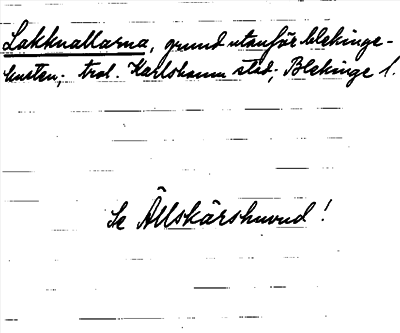 Lakknallarna, grund utanför blekinge-
kusten; trol. Karlshamn stad; Blekinge l.
Se Ällskärshuvud!